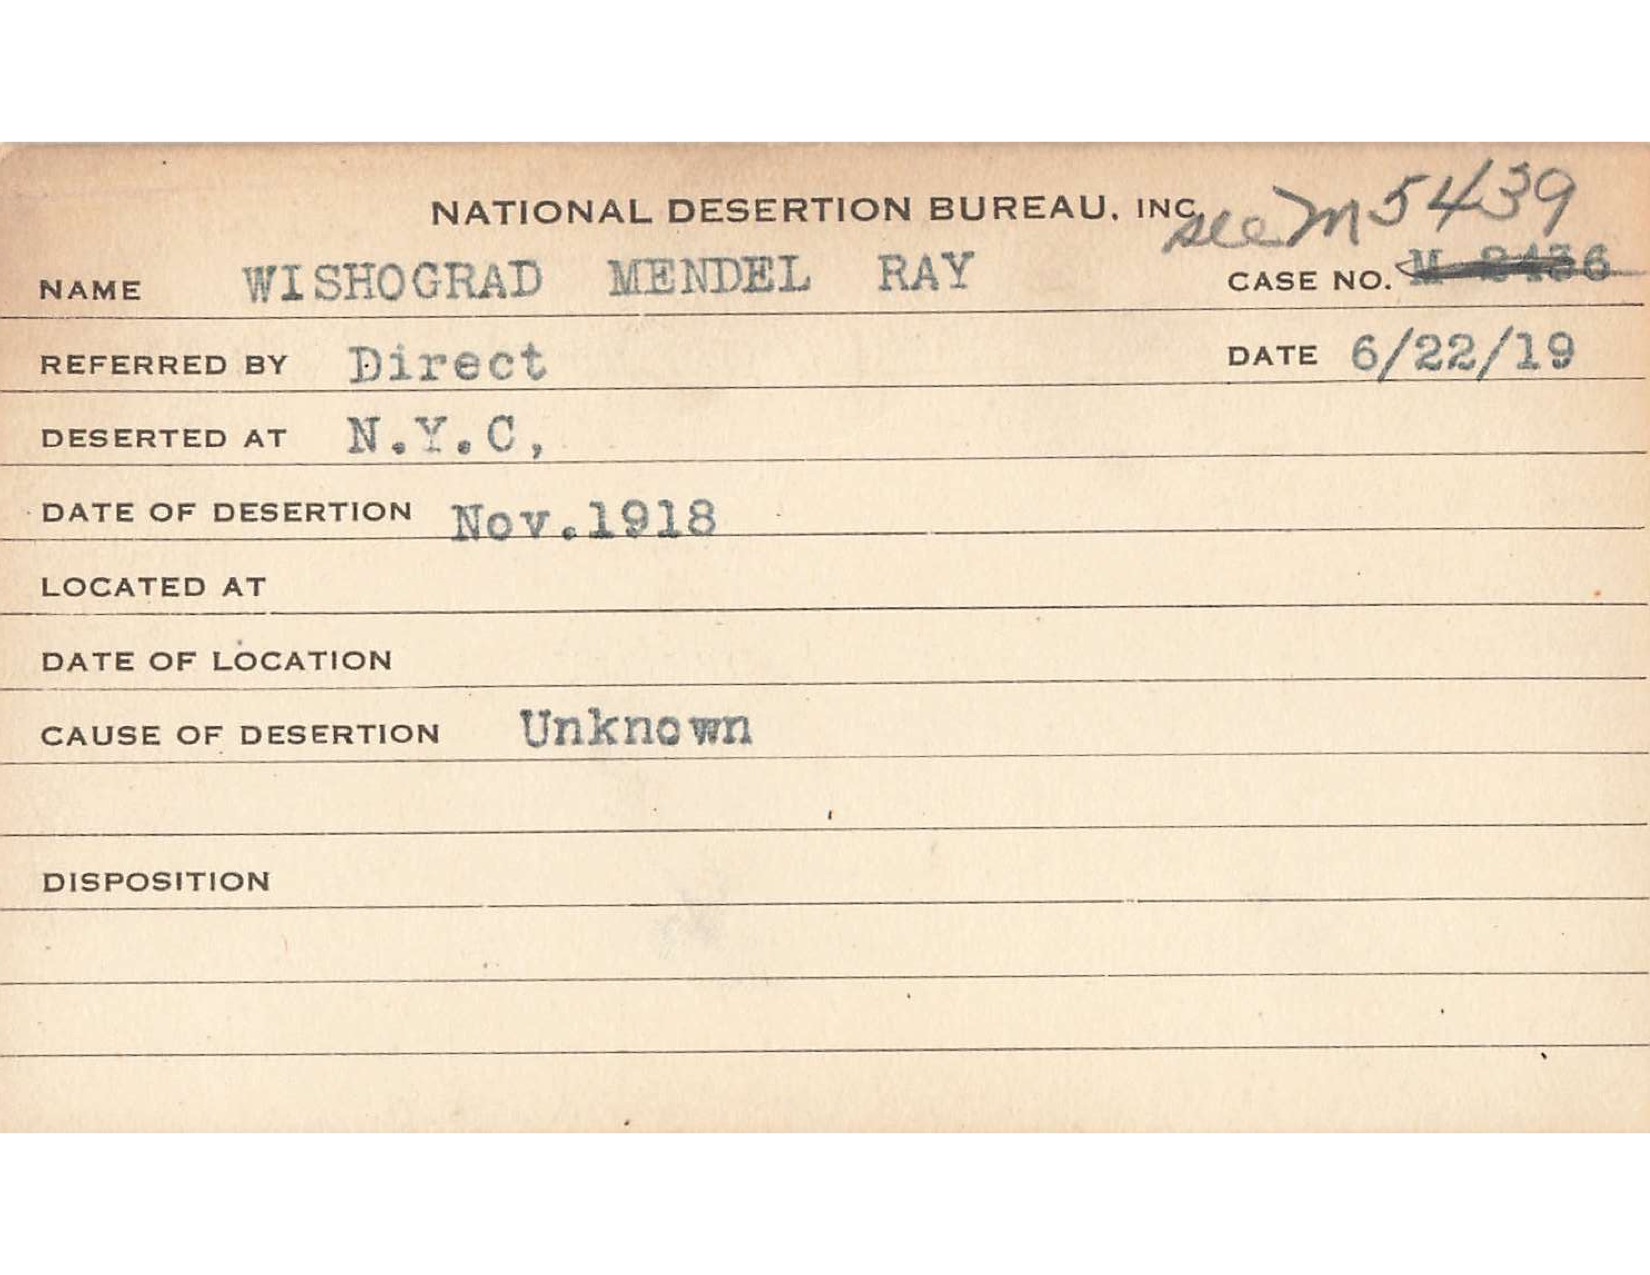 NATIONAL DESERTION BUREAU, INC.
see M 5439
NAME WISHOGRAD MENDEL RAY CASE NO. M 8436
REFERRED BY Direct DATE 6/22/19
DESERTED AT N.Y.C,
DATE OF DESERTION Nov.1918
LOCATED AT
DATE OF LOCATION
CAUSE OF DESERTION Unknown
DISPOSITION